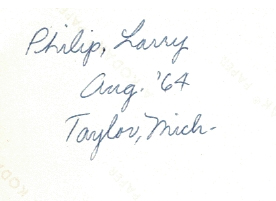 Philip, Larry
Aug. '64
Taylor, Mich-